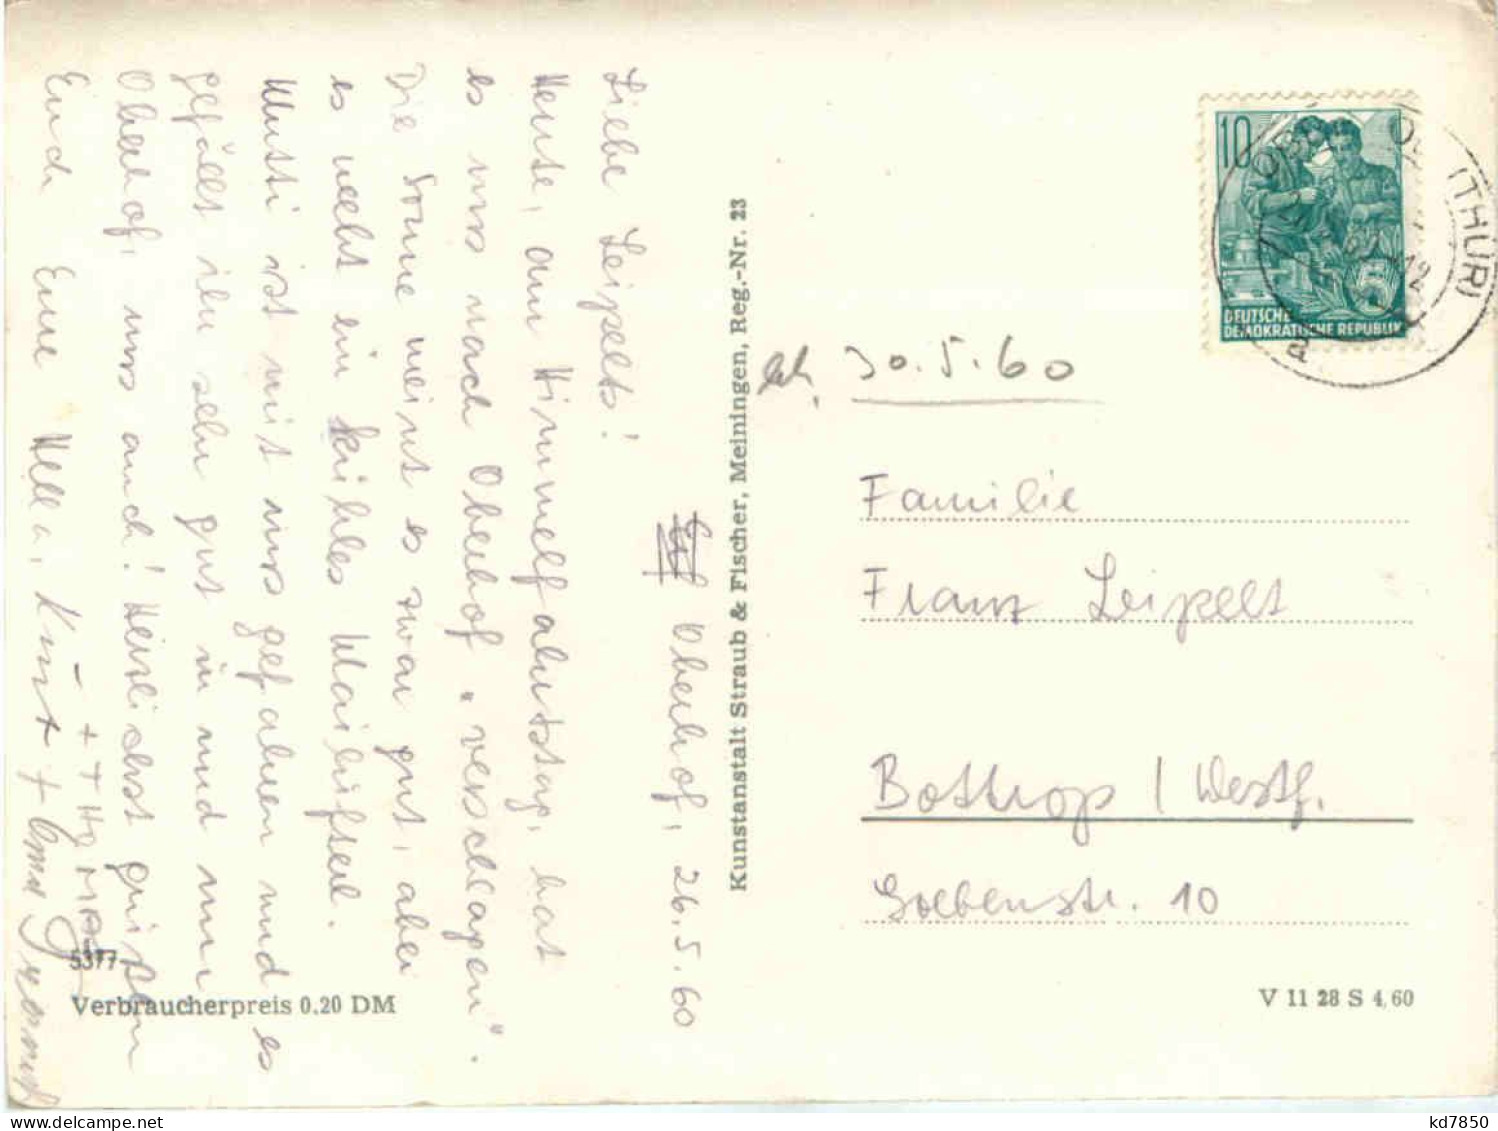 Oberhof, 26.5.60
Liebe Leipelts!
Heute, am Himmelfahrtstag, hat
es uns nach Oberhof „verschlagen".
Die Sonne meint es zwar gut, aber
es weht ein kühles Mailüfterl.
Mutti ist mit uns gefahren und es
gefällt ihr sehr gut in und um
Oberhof, uns auch! Herzlichst grüssen
Euch Eure Hella, Kurt +
+ THOMAS
5377
Verbraucherpreis 0.20 DM
Kunstanstalt Straub & Fischer, Meiningen, Reg.-Nr. 23
10
5
DEUTSCHE
DEMOKRATISCHE REPUBLIK
(THÜR)
30.5.60
Familie
Franz Leipelt
Bottrop / Westf.
Goebenstr. 10
V 11 28 S 4,60
kd7850